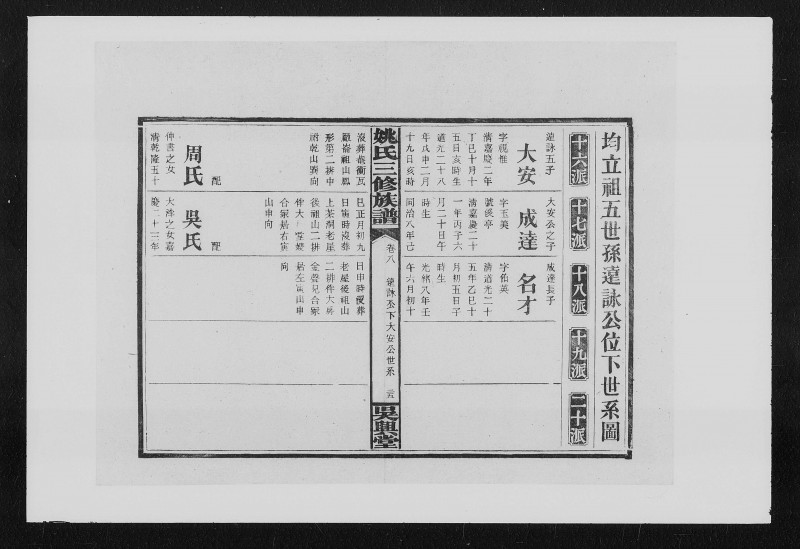 均立祖五世孫遠詠公位下世系圖
十六派
十七派
十八派
十九派
二十派
遠詠五子
大安
字視惟
清嘉慶二年
丁巳十月十
五日亥時生
道光二十八
年戊申二月
十九日亥時
大安公之子
成達
字玉美
號溪亭
清嘉慶二十
一年丙子六
月二十日午
時生
同治八年己
成達長子
名才
字佑英
清道光二十
五年乙巳十
月初五日子
時生
光緒八年壬
午六月初十
姚氏三修族譜
卷八
遠詠公下大安公世系
吳興堂
沒葬
祖山
形第二排中
乾山巽向
配
周氏
仲書之女
清乾隆五十
巳正月初九
日寅時沒葬
後祖山二排
合冢居右寅
山申向
配
吳氏
大滌之女嘉
慶二十三年
日申時歿葬
老屋後祖山
二排
合冢
居左寅山申
向